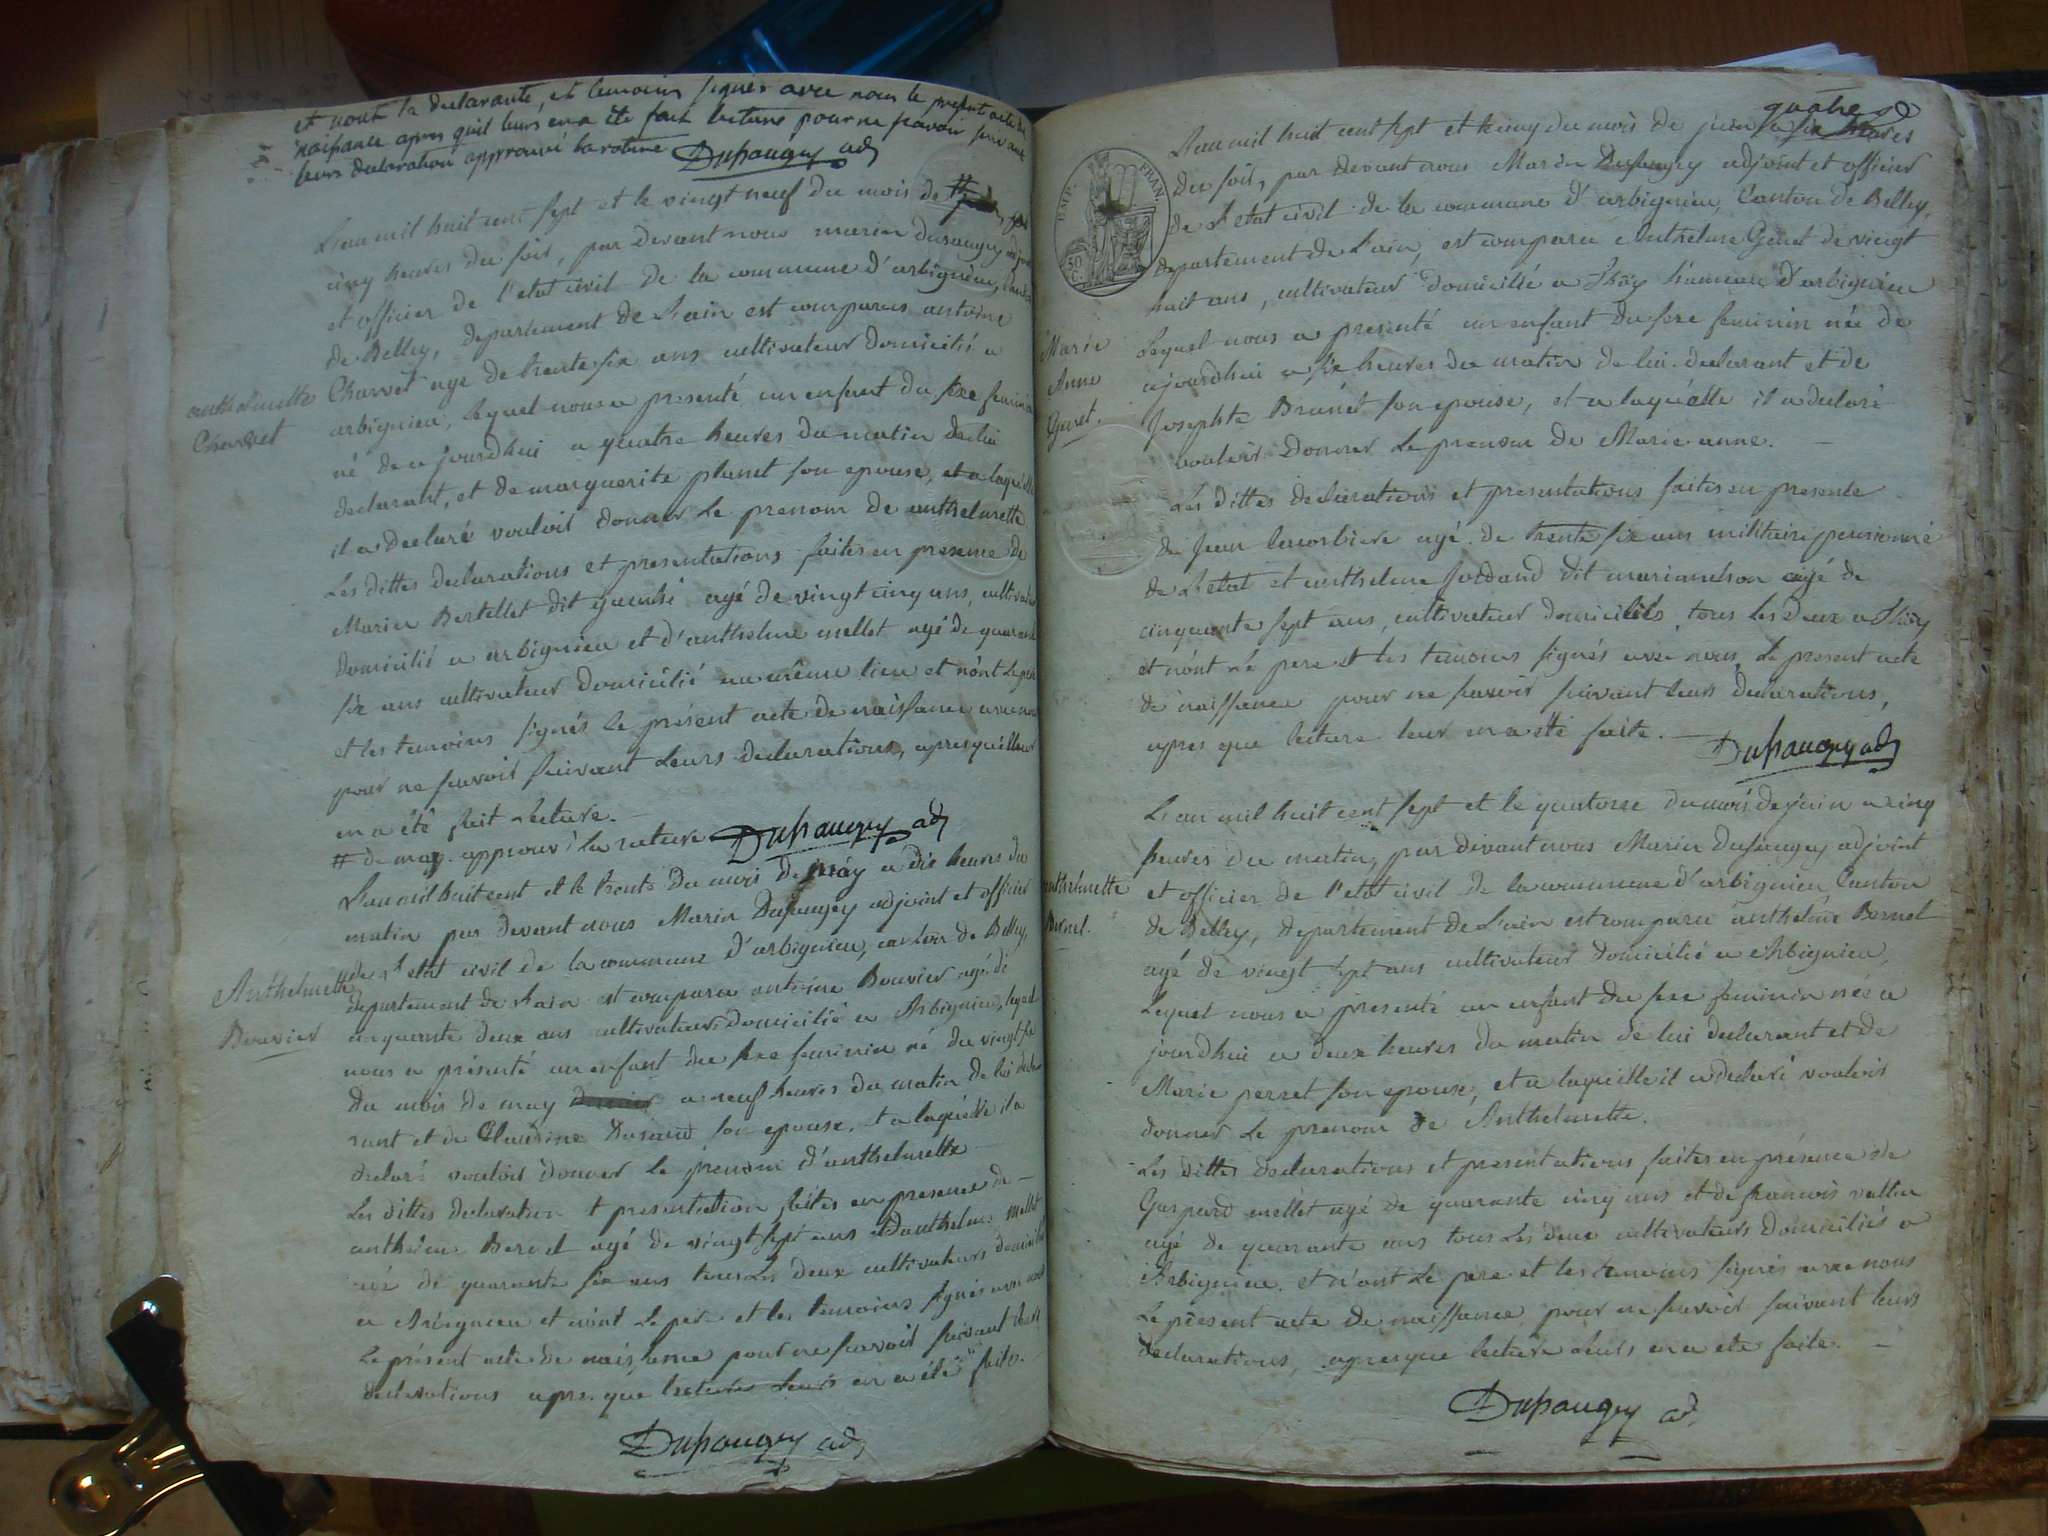 et nont la declarante, et temoins signés avec nous le present acte de
naissance apres quil leurs en a ete fait lecture pour ne savoir suivant
leurs declaration approuvé la rature Dusaugey adj
L'an mil huit cent sept et le vingt neuf du mois de
cinq heures du soir, par devant nous marin dusaugey adjoint
et officier de l'etat civil de la commune d'arbignieu, canton
de Belley, departement de L'ain est comparus antoine
Charvet age de trente six ans cultivateur domicilié a
arbignieu, lequel nous a presenté un enfant du sexe feminin
né de ajourdhui a quatre heures du matin de lui
declarant, et de marguerite planet son epouse, et a laquelle
il a declaré vouloir donner le prenom de anthelmette
Les dittes declarations et presentations faites en presence de
Marin Bertellet dit agé de vingt cinq ans, cultivateur
domicilié a arbignieu et d'anthelme mellet agé de quarante
six ans cultivateur domicilié au même lieu et nónt le pere
et les temoins signés le présent acte de naissance avec nous
pour ne savoir suivant leurs declarations, apres quil leur
en a été fait lecture.
# de may. approuvé la rature Dusaugey adj
anthelmette
Charvet
L'an mil huit cent et le trente du mois de may a dix heures du
matin par devant nous Marin Dusaugey adjoint et officier
de l'etat civil de la commune d'arbignieu, canton de Belley,
departement de L'ain est comparu antoine Bouvier agé de
cinquante deux ans cultivateur domicilié a Arbignieu, lequel
nous a présenté un enfant du sexe feminin né du vingt
du mois de may a neuf heures du matin de lui decla
rant et de Claudine son epouse, et a laquelle il a
declaré vouloir donner le prenom d'anthelmette
Les dittes declaration et presentation faites en presence de
anthelme Bernel agé de vingt sept ans et Danthelme mellet
agé de quarante six ans tous les deux cultivateurs domiciliés
a Arbignieu et nónt le pere et les temoins signés avec nous
Le présent acte de naissance pour ne savoir suivant leurs
declarations apres que lecture leurs en a été faite.
Dusaugey adj
Anthelmette
Bouvier
quatre
L'an mil huit cent sept et le cinq du mois de juin a six heures
du soir, par devant nous Marin Dusaugey adjoint et officier
de L'etat civil de la commune d'arbignieu, Canton de Belley,
departement de L'ain, est comparu Anthelme Genet de vingt
huit ans, cultivateur domicilié a Thoy hameau d'arbignieu
Lequel nous a presenté un enfant du sexe feminin née de
ajourdhui a six heures du matin de lui declarant et de
Josephte Brunet son epouse, et a laquelle il a declaré
vouloir donner le prenom de Marie anne.
EMP. FRAN.
Marie
Anne
Genet.
Les dittes declarations et presentations faites en presente
de Jean agé de trente six ans militaire pensionné
de L'etat et anthelme dit agé de
cinquante sept ans, cultivateur domiciliés tous les deux a Thoy
et nónt le pere et les temoins signés avec nous, Le present acte
de naissance pour ne savoir suivant leurs declarations,
apres que lecture leur en a été faite.
Dusaugey adj
L'an mil huit cent sept et le quatorse du mois de juin a cinq
heures du matin, par devant nous Marin dusaugey adjoint
et officier de l'etat civil de la commune d'arbignieu Canton
de Belley, departement de L'ain est comparu anthelme Bernel
agé de vingt sept ans cultivateur domicilié a Arbignieu,
Lequel nous a présenté un enfant du sexe feminin née a
jourdhui a deux heures du matin de lui declarant et de
Marie perret son epouse, et a laquelle il a declaré vouloir
donner Le prenom de Anthelmette.
anthelmette
Bernel.
Les dittes declarations et presentations faites en présence de
Gaspard mellet agé de quarante cinq ans et de francois vallin
agé de quarante ans tous Les deux cultivateurs domiciliés a
Arbignieu. et n'ont Le pere et les temoins signés avec nous
Le présent acte de naissance pour ne savoir suivant leurs
declarations, apres que lecture leurs en a ete faite.
Dusaugey ad.